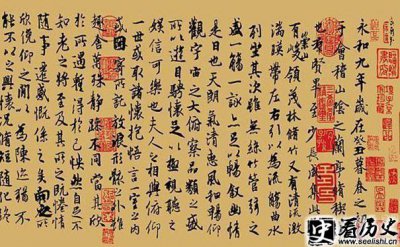 永和九年歲在癸丑暮春之
于會稽山陰之蘭亭脩禊
羣賢畢至少長咸集
崇山
有峻領茂林脩竹又有清流激
湍暎帶左右引以為流觴曲水
列坐其次雖無絲竹管弦之
盛一觴一詠亦足以暢敘幽情
是日也天朗氣清惠風和暢仰
觀宇宙之大俯察品類之盛
所以遊目騁懷足以極視聽之
娛信可樂也夫人之相與俯仰
一世或取諸懷抱悟言一室之內
因寄所託放浪形骸之外
趣舍萬殊靜躁不同當其欣
於所遇蹔得於己怏然自足不
知老之將至及其所之既惓情
隨事遷感慨係之矣向之所
欣俛仰之閒以為陳迹猶不
能不以之興懷況脩短隨化終
看历史
www.seelishi.cn